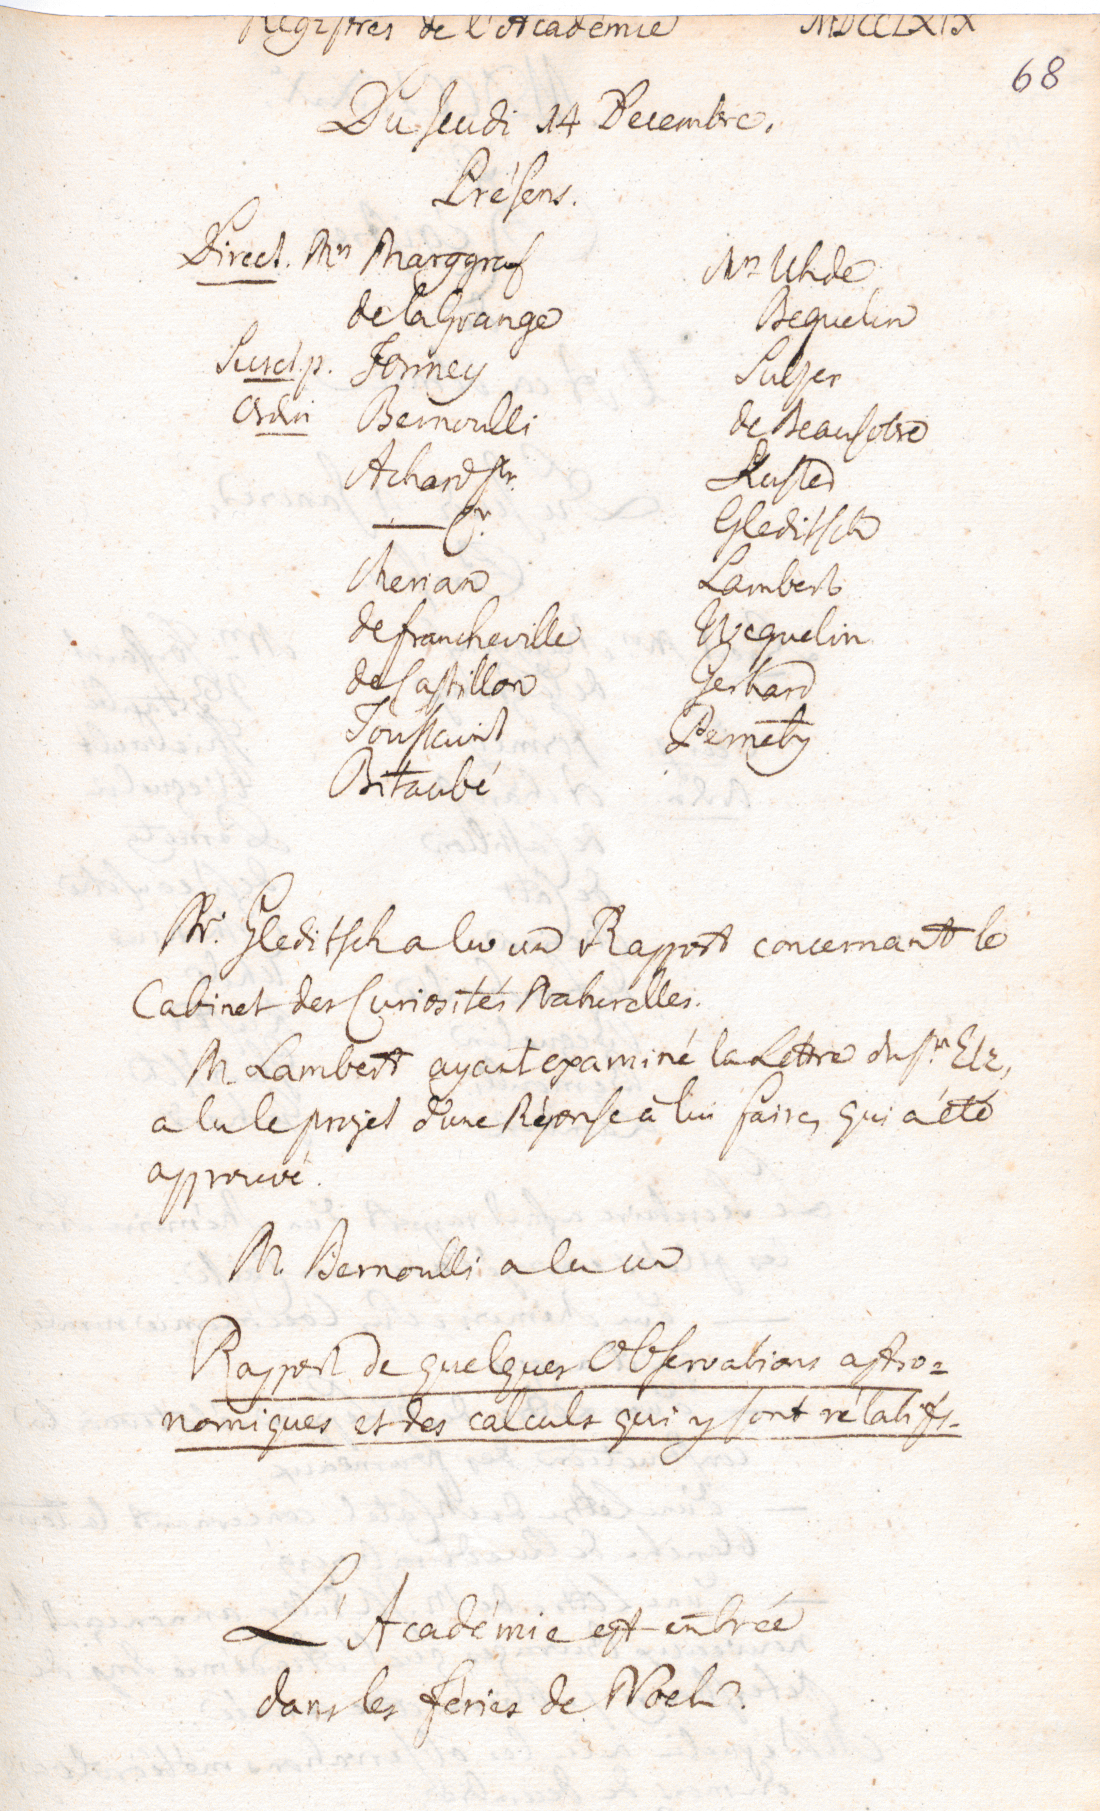 Registres de l'Académie MDCCLXIX
68
Du Jeudi 14 Decembre.
Présens.
Direct. Mrs Marggraf
de la Grange
Formey
Ordin Bernoulli
Achard Sr.
—— Jr.
Merian
de francheville
de Castillon
Toussaint
Bitaubé
Mrs Uhde
Beguelin
Sulzer
de Beausobre
Kuster
Gleditsch
Lambert
Weguelin
Gerhard
Pernety
Mr. Gleditsch a lu un Rapport concernant le
Cabinet des Curiosités Naturelles.
M Lambert ayant examiné la Lettre du Sr.
a lu le projet d'une Réponse à lui faire, qui a été
approuvé.
M. Bernoulli a lu un
Rapport de quelques Observations astro=
nomiques et des calculs qui y sont rélatifs.
L'Académie est entrée
dans les féries de Noel.